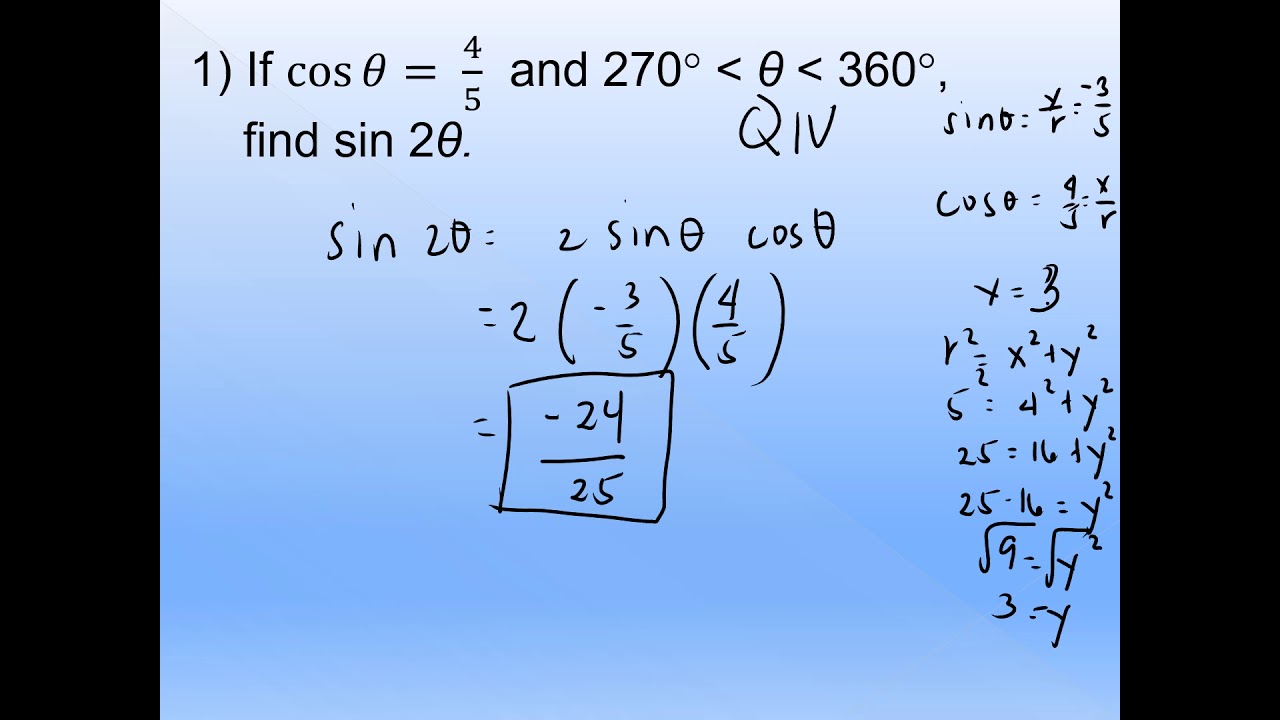 1) If cos θ = 4/5 and 270° < θ < 360°,
find sin 2θ.
QIV
sin 2θ = 2 sinθ cosθ
= 2 (-3/5)(4/5)
= -24/25
sinθ = y/r = -3/5
cosθ = 4/5 = x/r
y = 3
r² = x² + y²
5² = 4² + y²
25 = 16 + y²
25 - 16 = y²
√9 = √y²
3 = y